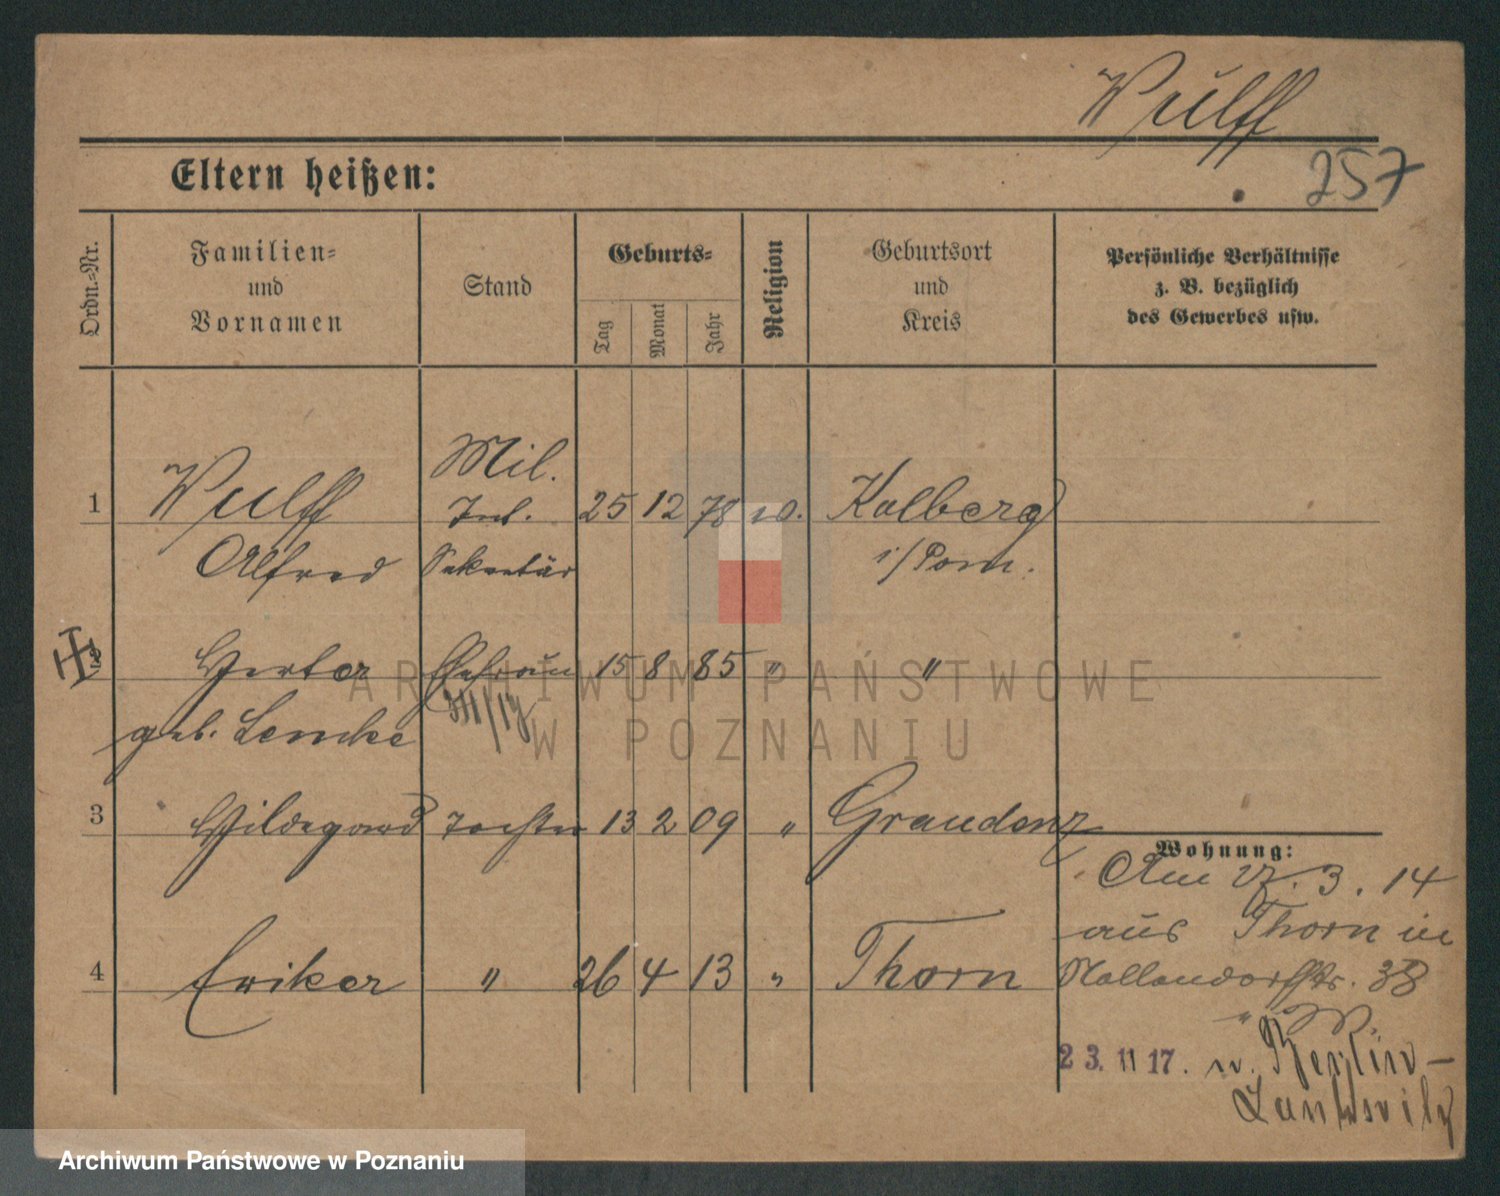 Wulff
257
Eltern heißen:
Ordn.-Nr.
Familien-
und
Vornamen
Stand
Geburts-
Tag
Monat
Jahr
Religion
Geburtsort
und
Kreis
Persönliche Verhältnisse
z. B. bezüglich
des Gewerbes usw.
Mil.
1 Wulff Int. 25 12 78 ev. Kolberg
Alfred Sekretär i/Pom.
2 Herta Ehefrau 15 8 85 " "
geb. Lemcke
3 Hildegard Tochter 13 2 09 " Graudenz
Wohnung:
Am 27. 3. 14
aus Thorn in
4 Erika " 26 4 13 " Thorn Nollendorfstr. 38
23. 11 17. n. Berlin-
Lankwitz
ARCHIWUM PAŃSTWOWE
W POZNANIU
Archiwum Państwowe w Poznaniu